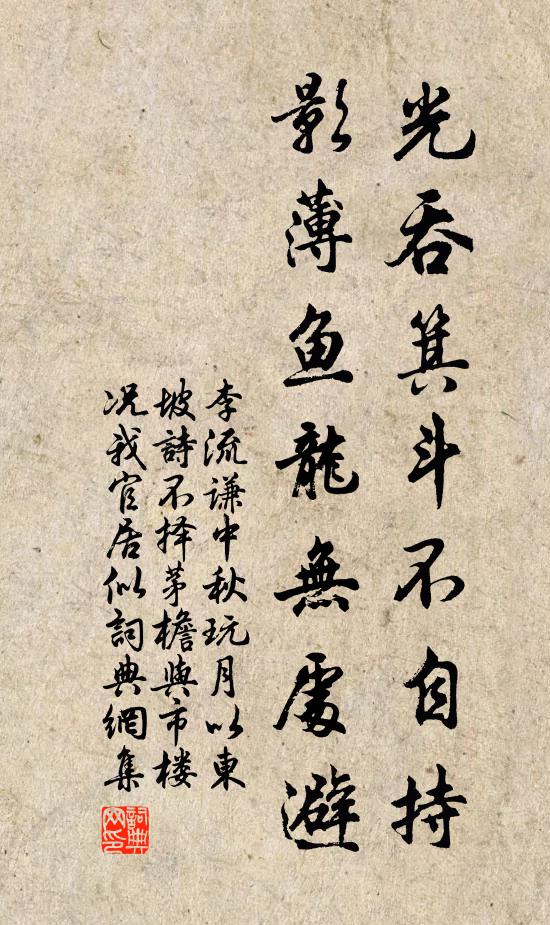 光吞箕斗不自持
影薄魚龍無處避
李流謙中秋玩月以東
坡詩不择茅檐與市楼
况我官居似詞典網集